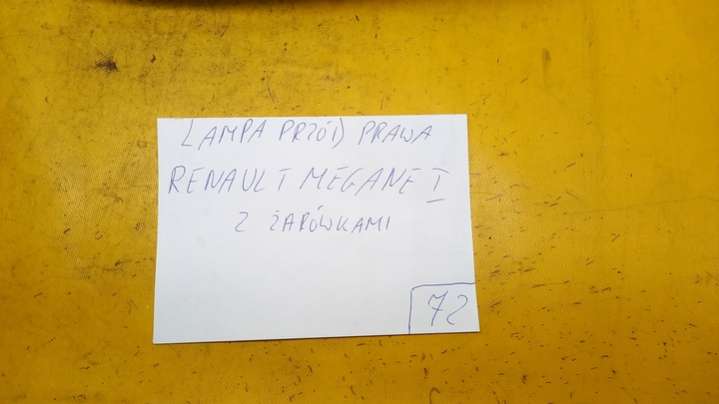 LAMPA PRZÓD PRAWA
RENAULT MEGANE I
Z ŻARÓWKAMI
72